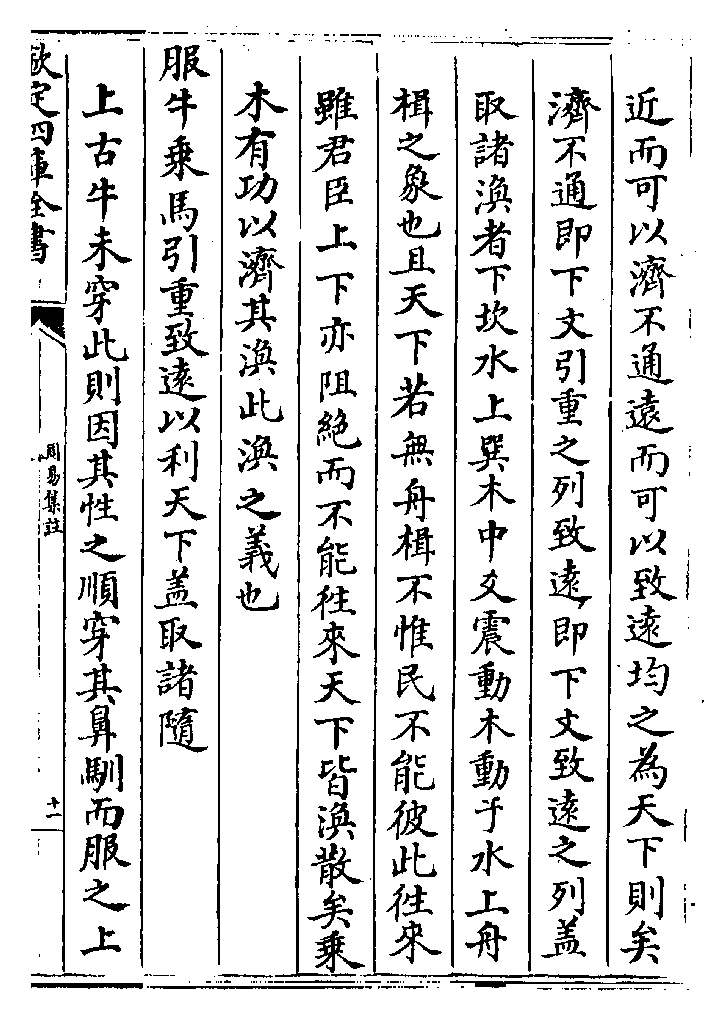 近而可以濟不通遠而可以致遠均之為天下則矣
濟不通即下文引重之列致遠即下文致遠之列蓋
取諸渙者下坎水上巽木中爻震動木動于水上舟
楫之象也且天下若無舟楫不惟民不能彼此往來
雖君臣上下亦阻絕而不能往來天下皆渙散矣乗
木有功以濟其渙此渙之義也
服牛乗馬引重致逺以利天下蓋取諸隨
上古牛未穿此則因其性之順穿其鼻馴而服之上
欽定四庫全書
周易集註
十一